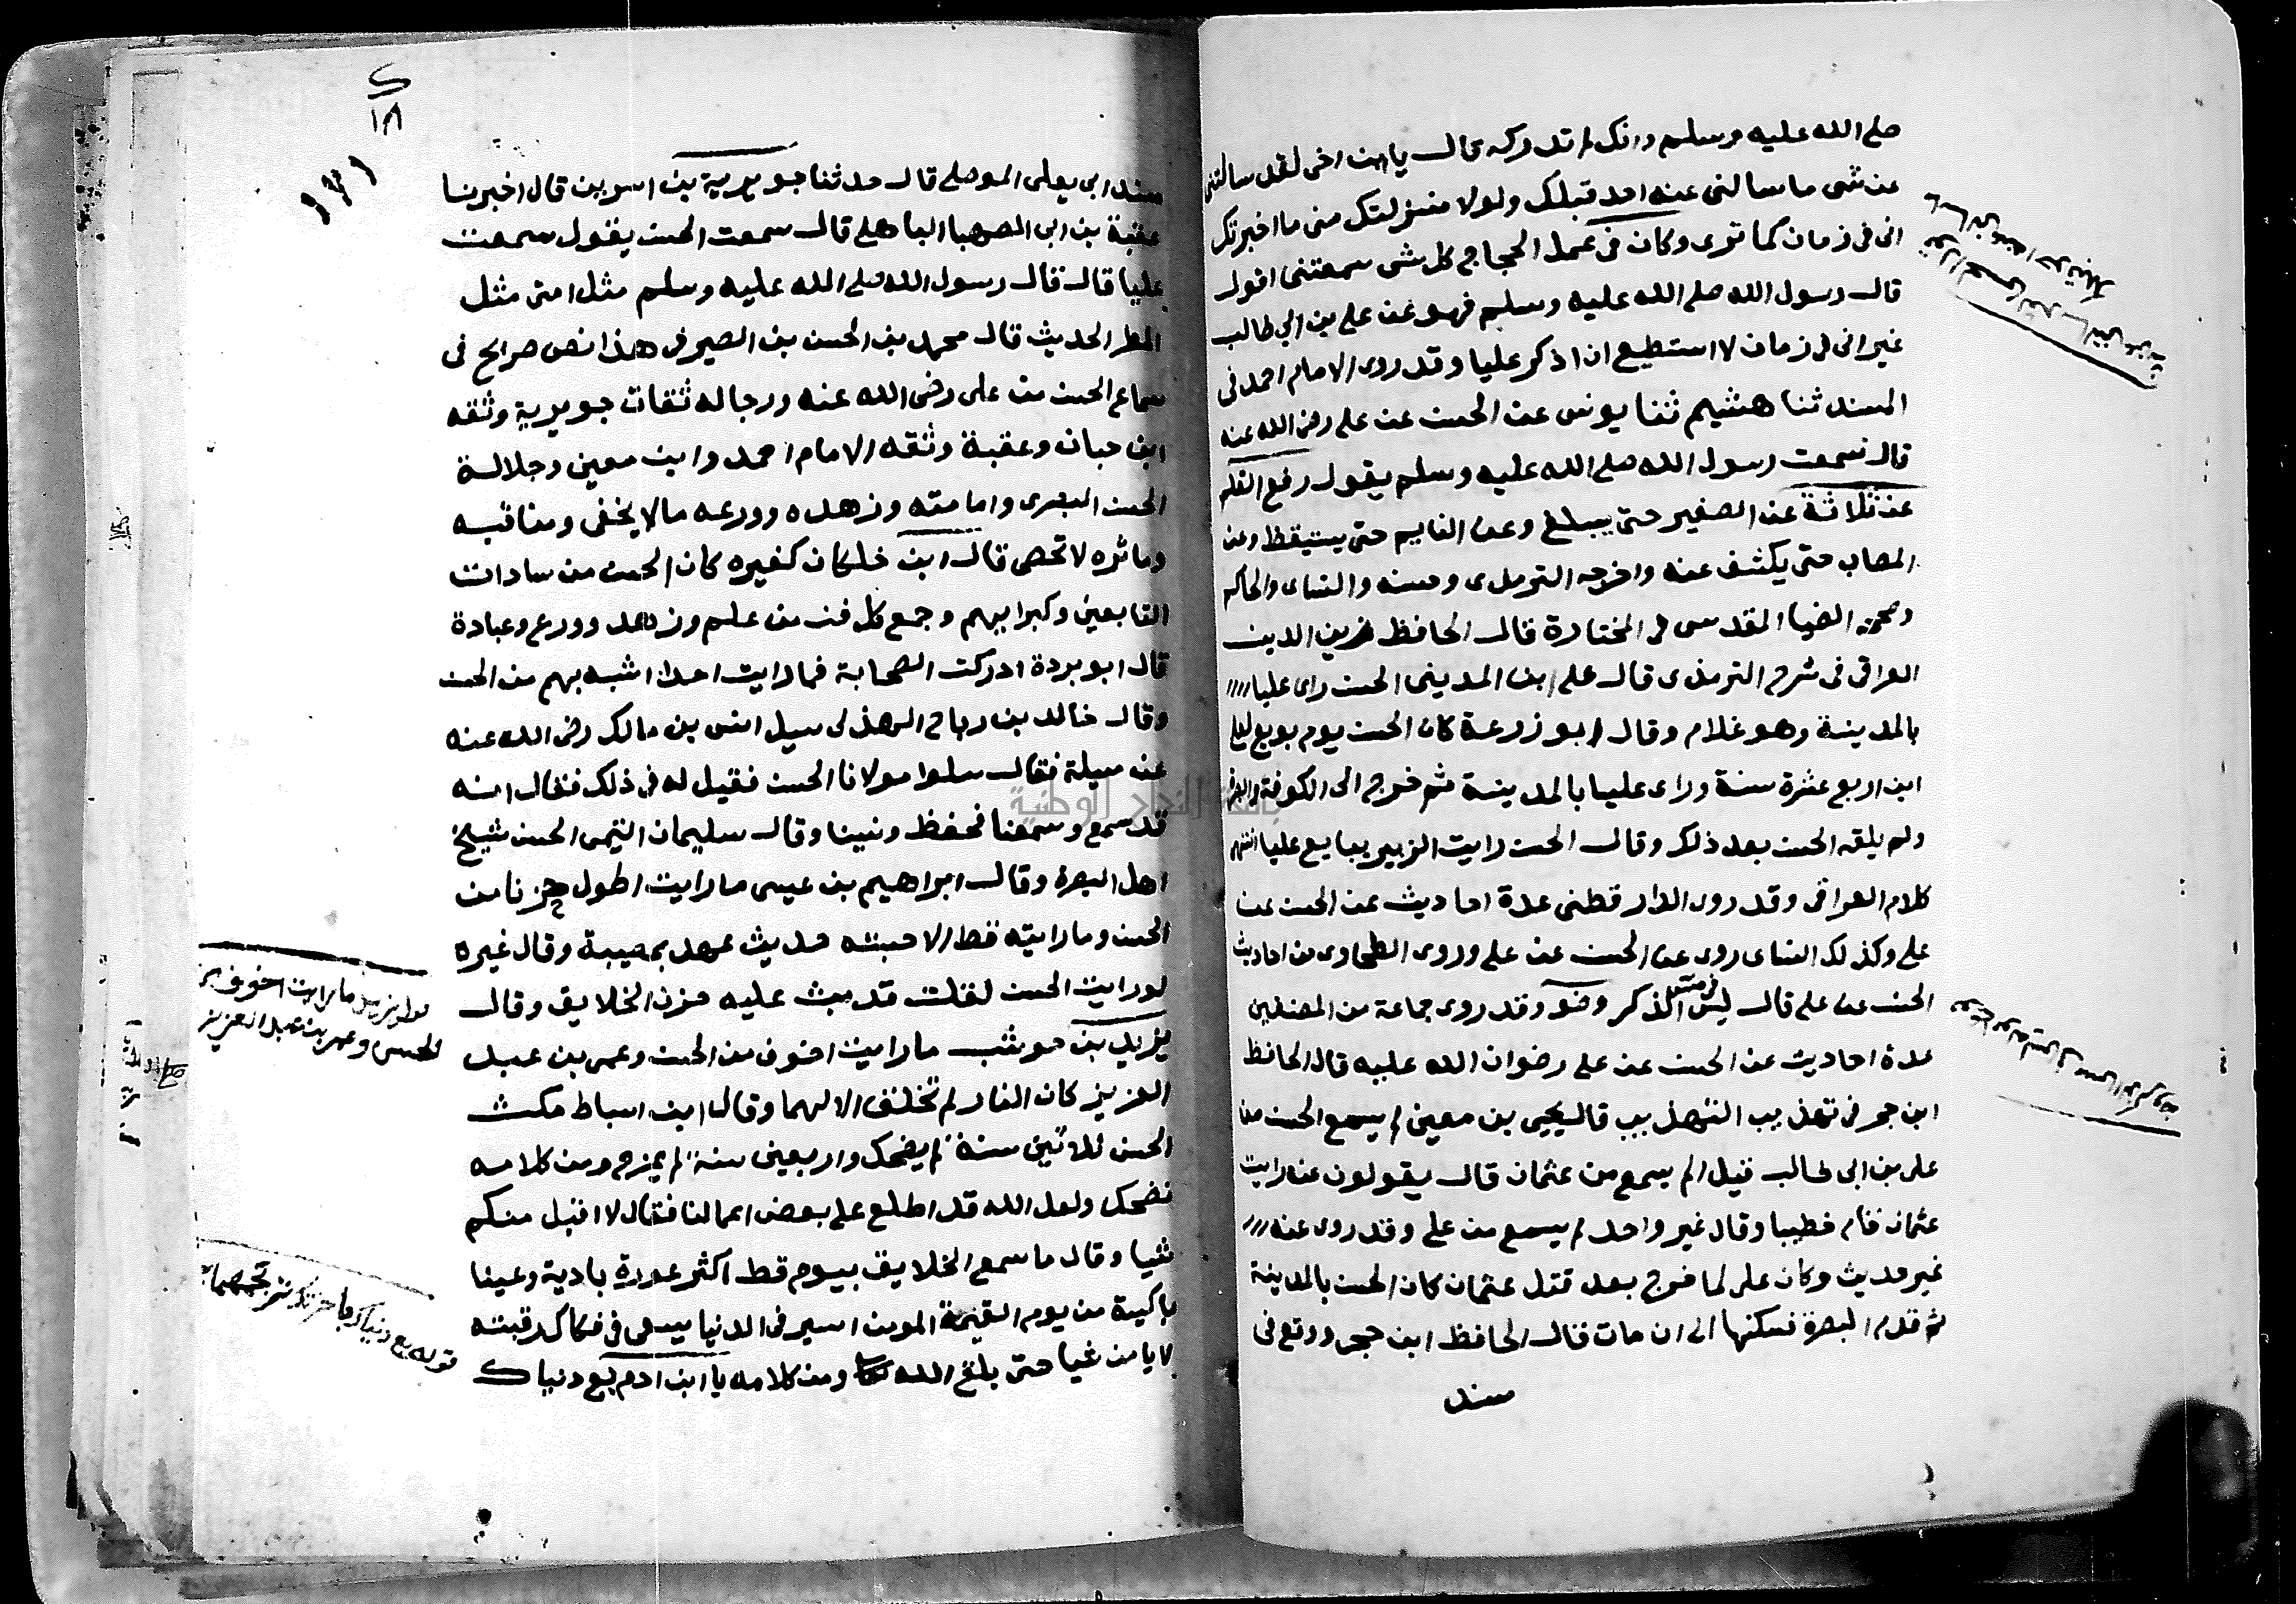 صلى الله عليه وسلم وانك لم تدركه قال يا ابن اخى لقد سالتنى
عن شى ما سالنى عنه احد قبلك ولولا منزلتك منى ما اخبرتك
انى فى زمان كما ترى وكان فى عمل الحجاج كل شى سمعتنى اقول
قال رسول الله صلى الله عليه وسلم فهو عن على بن ابى طالب
غير انى فى زمان لا استطيع ان اذكر عليا وقد روى الامام احمد فى
المسند ثنا هشيم ثنا يونس عن الحسن عن على رضى الله عنه
قال سمعت رسول الله صلى الله عليه وسلم يقول رفع القلم
عن ثلاثة عن الصغير حتى يبلغ وعن النايم حتى يستيقظ وعن
المصاب حتى يكشف عنه واخرجه الترمذى وحسنه والنساى والحاكم
وصححه الضيا المقدسى فى المختارة قال الحافظ زين الدين
العراقى فى شرح الترمذى قال على ابن المدينى الحسن راى عليا
بالمدينة وهو غلام وقال ابو زرعة كان الحسن يوم بويع لعلى
ابن اربع عشرة سنة وراى عليا بالمدينة ثم خرج الى الكوفة والبصرة
ولم يلقه الحسن بعد ذلك وقال الحسن رايت الزبير يبايع عليا انتهى
كلام العراقى وقد روى الدار قطنى عدة احاديث عن الحسن عن
على وكذلك النساى روى عن الحسن عن على وروى الطحاوى من احاديث
الحسن عن على قال ليس فى مس الذكر وضو وقد روى جماعة من المصنفين
عدة احاديث عن الحسن عن على رضوان الله عليه قال الحافظ
ابن حجر فى تهذيب التهذيب قال يحيى بن معين لم يسمع الحسن من
على بن ابى طالب قيل الم يسمع من عثمان قال يقولون عنه رايت
عثمان قام خطيبا وقال غير واحد لم يسمع من على وقد روى عنه
غير حديث وكان على لما خرج بعد قتل عثمان كان الحسن بالمدينة
ثم قدم البصرة فسكنها الى ان مات قال الحافظ ابن حجر ووقع فى
مسند
١٨
مسند ابى يعلى الموصلى قال حدثنا جويرية بن اسرس قال اخبرنا
عقبة بن ابى الصهبا الباهلى قال سمعت الحسن يقول سمعت
عليا قال قال رسول الله صلى الله عليه وسلم مثل امتى مثل
المطر الحديث قال محمد بن الحسن بن الصيرفى هذا نص صرايح فى
سماع الحسن من على رضى الله عنه ورجاله ثقات جويرية وثقه
ابن حبان وعقبة وثقه الامام احمد وابن معين وجلالة
الحسن البصرى وامامته وزهده وورعه مالا يخفى ومناقبه
وماثره لا تحصى قال ابن خلكان كغيره كان الحسن من سادات
التابعين وكبرايهم وجمع كل فن من علم وزهد وورع وعبادة
قال ابو بردة ادركت الصحابة فما رايت احدا اشبه بهم من الحسن
وقال خالد بن رباح الهذلى سيل انس بن مالك رضى الله عنه
عن ميلة فقال سلوا مولانا الحسن فقيل له فى ذلك فقال انه
قد سمع وسمعنا فحفظ ونسينا وقال سليمان التيمى الحسن شيخ
اهل البصرة وقال ابراهيم بن عيسى ما رايت اطول حزنا من
الحسن وما رايته قط الا حسبته حديث عهد بمصيبة وقال غيره
لو رايت الحسن لقلت قد بث عليه حزن الخلايق وقال
يزيد بن حوشب ما رايت اخوف من الحسن وعمر بن عبد
العزيز كان النار لم تخلق الا لهما وقال ابن اسباط مكث
الحسن ثلاثين سنة لم يضحك واربعين سنة لم يمزح ومن كلامه
نضحك ولعل الله قد اطلع على بعض اعمالنا فقال لا اقبل منكم
شيا وقال ما سمع الخلايق بيوم قط اكثر عورة بادية وعينا
باكية من يوم القيمة المومن اسير فى الدنيا يسعى فى فكاك رقبته
لا يامن شيا حتى يلقى الله ومن كلامه يا ابن ادم بع دنياك
ما رايت اخوف من
الحسن وعمر بن عبد العزيز
قوله بع دنياك باخرتك تربحهما